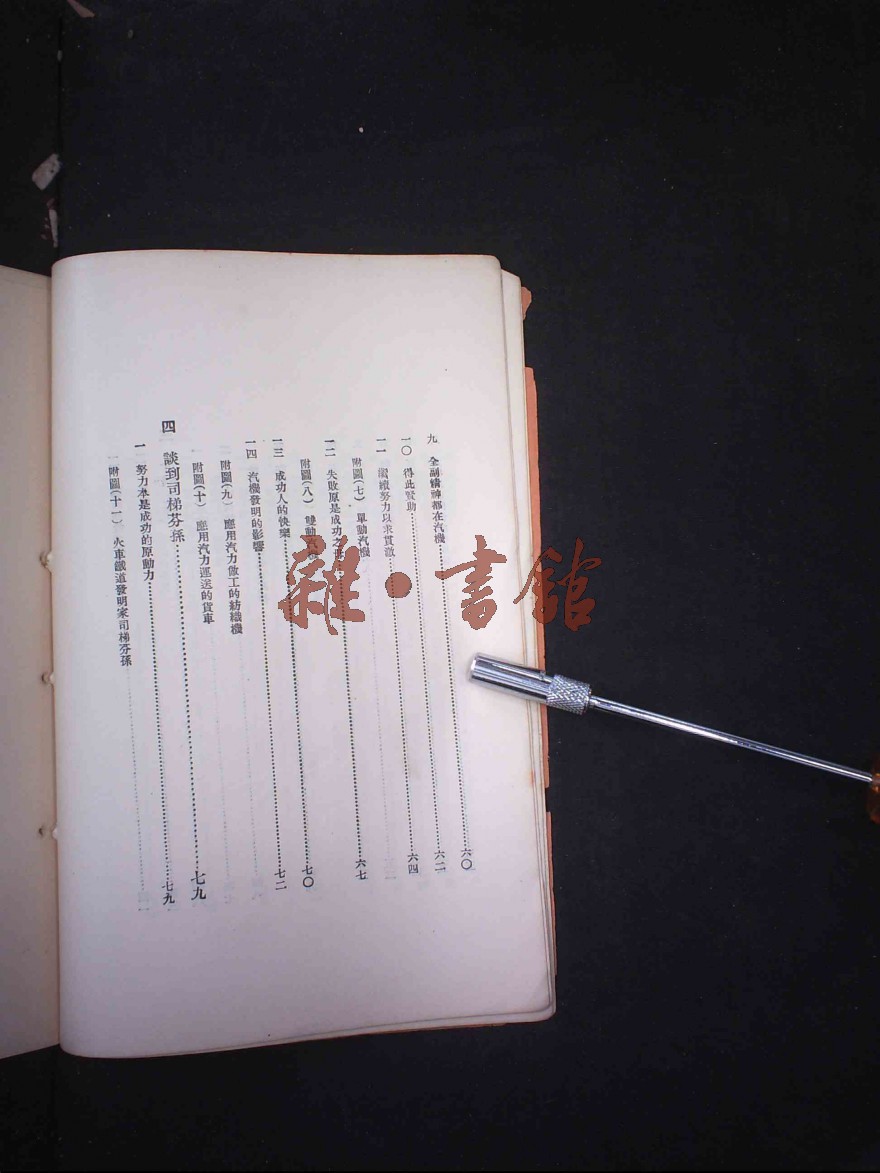 九 全副精神都在汽機……六〇
一〇 得此賢助……六二
一一 繼續努力以求貫澈……六四
附圖(七) 單動汽機
一二 失敗原是成功之……六七
附圖(八) 雙動汽
一三 成功人的快樂……七〇
一四 汽機發明的影響……七二
附圖(九) 應用汽力做工的紡織機
附圖(十) 應用汽力運送的貨車
四 談到司梯芬孫……七九
一 努力本是成功的原動力……七九
附圖(十一) 火車鐵道發明家司梯芬孫
雜·書館